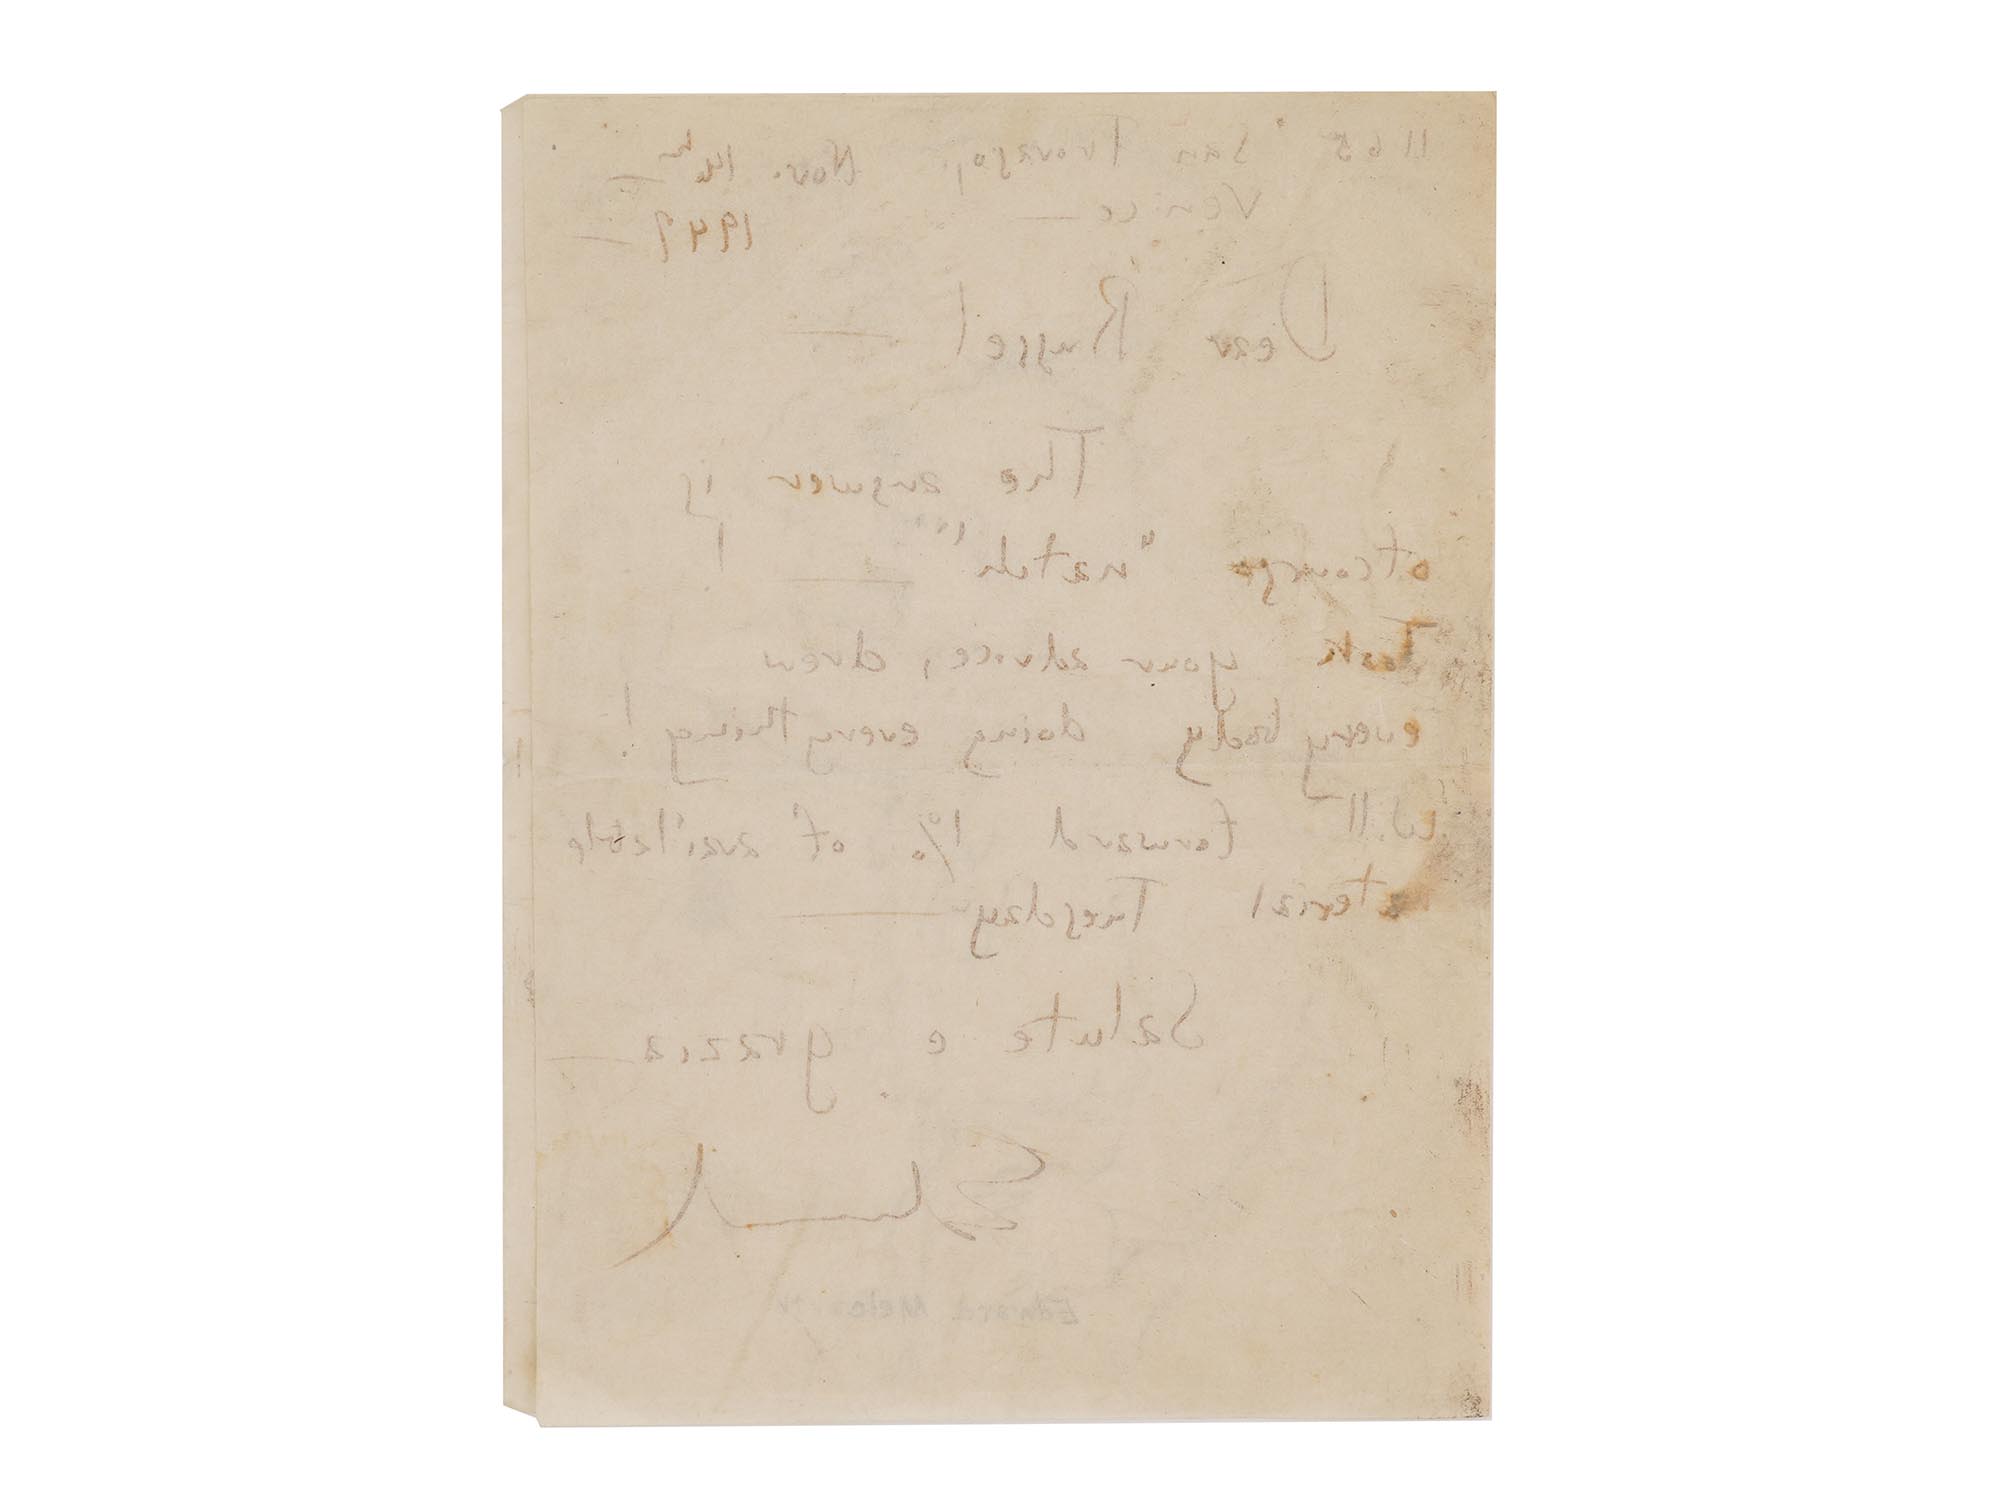 1165 San Trovaso, Nov. 14th
Venice — 1949 —
Dear Russel —
The answer is
ofcourse "natch" — !
Took your advice, drew
everybody doing everything!
Will forward 1% of available
material Tuesday —
Salute e grazia —
Edward